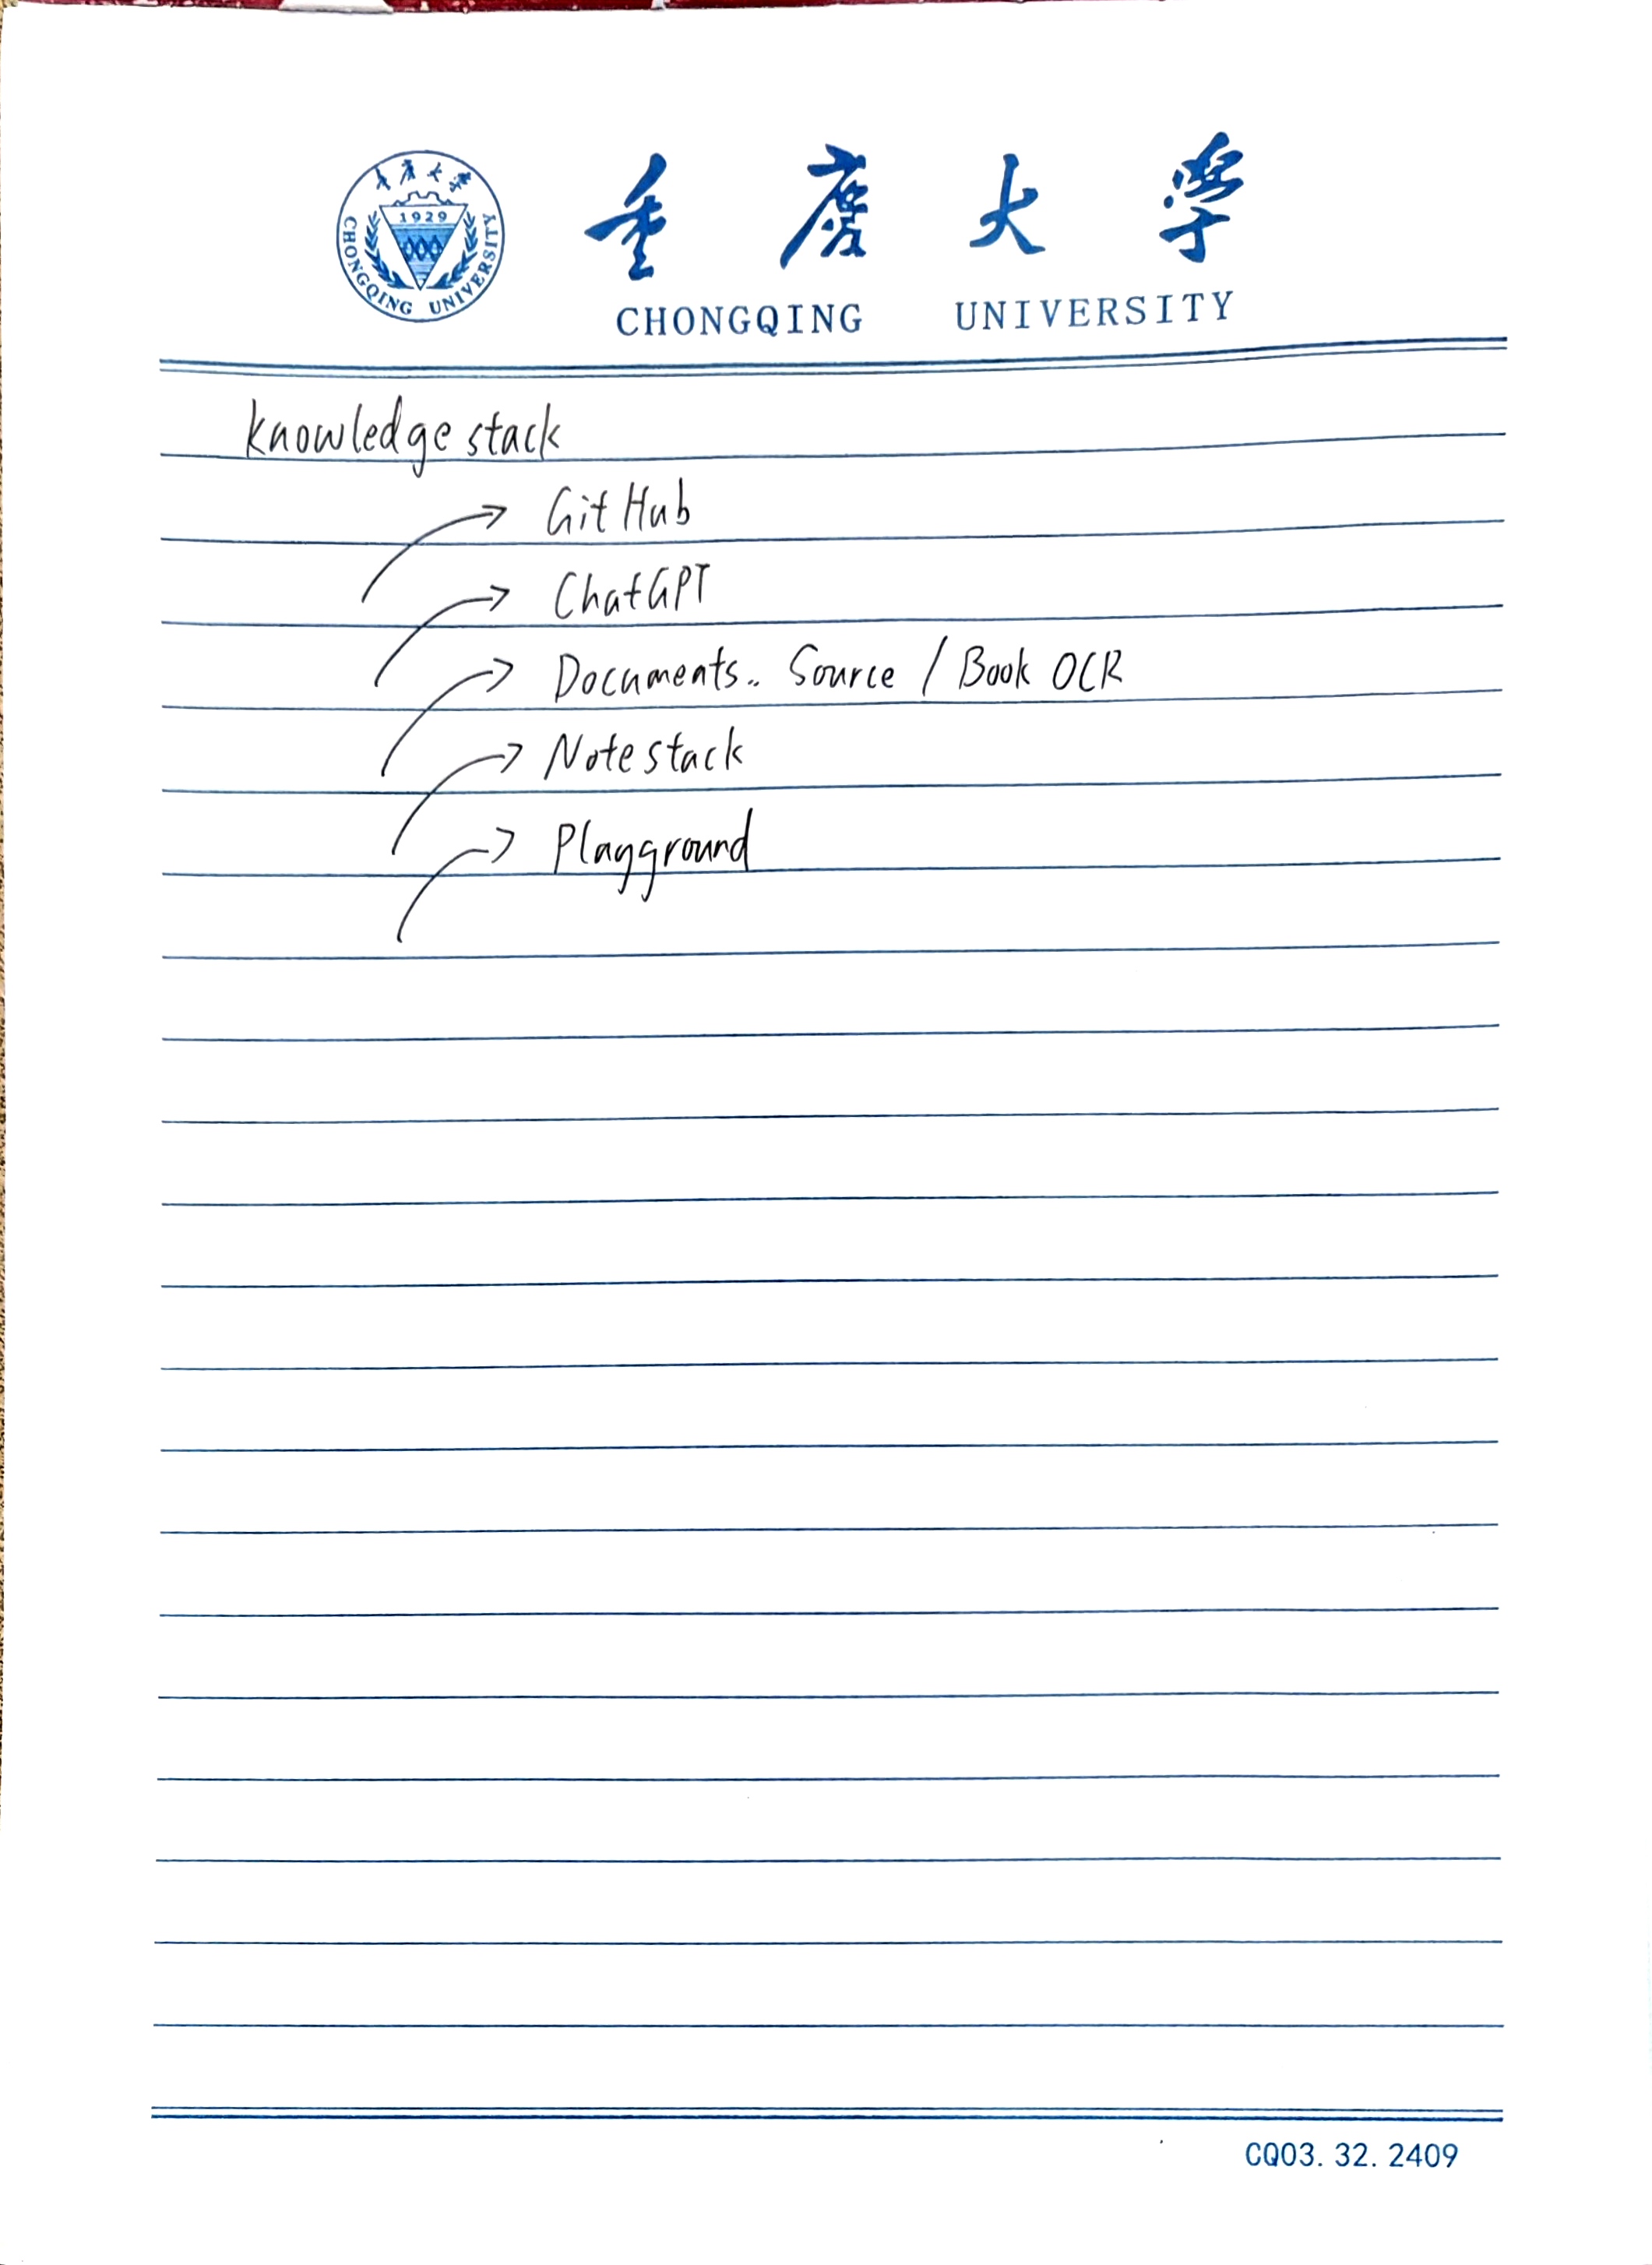 重庆大学
1929
CHONGQING UNIVERSITY
重慶大學
CHONGQING UNIVERSITY
knowledge stack
GitHub
ChatGPT
Documents.. Source / Book OCR
Note stack
Playground
CQ03. 32. 2409